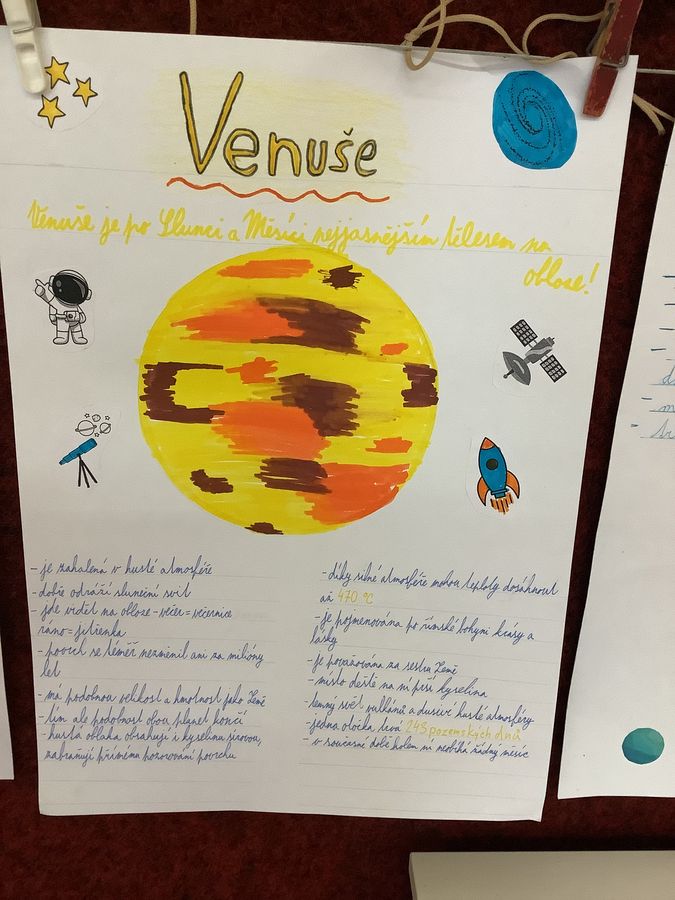 Venuše
Venuše je po Slunci a Měsíci nejjasnějším tělesem na
obloze!
- je zahalená v husté atmosféře
- dobře odráží sluneční svit
- jde vidět na obloze - večer = večernice
ráno = jitřenka
- povrch se téměř nezměnil ani za milióny
let
- má podobnou velikost a hmotnost jako Země
- tím ale podobnost obou planet končí
- hustá oblaka obsahují i kyselinu sírovou,
zabraňují přímému pozorování povrchu
- díky silné atmosféře mohou teploty dosáhnout
až 470 °C
- je pojmenována po římské bohyni krásy a
lásky
- je považována za sestru Země
- místo deště na ní prší kyselina
- temný svět vulkánů a dusivé husté atmosféry
- jedna otočka trvá 243 pozemských dnů
- v současné době kolem ní neobíhá žádný měsíc